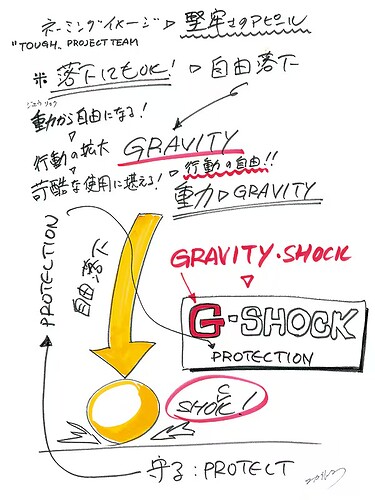 ネーミングイメージ ▷ 堅牢さのアピール
"TOUGH" PROJECT TEAM
※ 落下にもOK! ▷ 自由落下
ジュウリョク
動力から自由になる!
▽
行動の拡大 GRAVITY ▷ 行動の自由!!
▽
苛酷な使用に堪える! 重力 ▷ GRAVITY
PROTECTION
自由落下
GRAVITY・SHOCK
▽
G-SHOCK
PROTECTION
C
SHOK!
守る:PROTECT